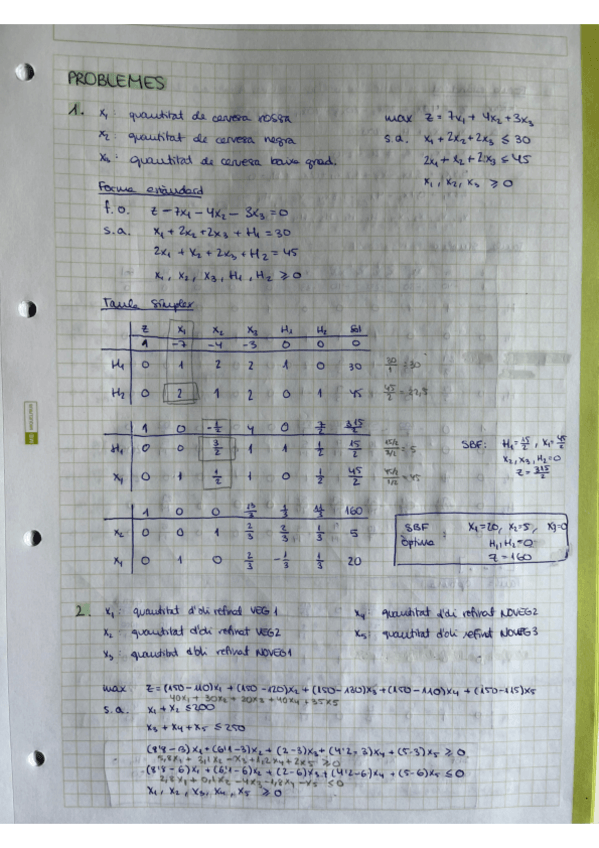 PROBLEMES
1. x₁: quantitat de cervesa rossa
x₂: quantitat de cervesa negra
x₃: quantitat de cervesa baixa grad.
max z = 7x₁ + 4x₂ + 3x₃
s.a. x₁ + 2x₂ + 2x₃ ≤ 30
2x₁ + x₂ + 2x₃ ≤ 45
x₁, x₂, x₃ ≥ 0
Forma estàndard
f.o. z - 7x₁ - 4x₂ - 3x₃ = 0
s.a. x₁ + 2x₂ + 2x₃ + H₁ = 30
2x₁ + x₂ + 2x₃ + H₂ = 45
x₁, x₂, x₃, H₁, H₂ ≥ 0
Taula Símplex
z x₁ x₂ x₃ H₁ H₂ Sol
1 -7 -4 -3 0 0 0
H₁ 0 1 2 2 1 0 30 30/1 = 30
H₂ 0 2 1 2 0 1 45 45/2 = 22,5
1 0 -1/2 4 0 7/2 315/2
H₁ 0 0 3/2 1 1 1/2 15/2 15/2 / 3/2 = 5
x₁ 0 1 1/2 1 0 1/2 45/2 45/2 / 1/2 = 45
SBF: H₁ = 15/2, x₁ = 45/2
x₂, x₃, H₂ = 0
z = 315/2
1 0 0 13/3 1/3 11/3 160
x₂ 0 0 1 2/3 2/3 1/3 5
x₁ 0 1 0 2/3 -1/3 1/3 20
SBF òptima: x₁ = 20, x₂ = 5, x₃ = 0
H₁, H₂ = 0
z = 160
2. x₁: quantitat d'oli refinat VEG1
x₂: quantitat d'oli refinat VEG2
x₃: quantitat d'oli refinat NOVEG1
x₄: quantitat d'oli refinat NOVEG2
x₅: quantitat d'oli refinat NOVEG3
max z = (150-110)x₁ + (150-120)x₂ + (150-130)x₃ + (150-110)x₄ + (150-115)x₅
40x₁ + 30x₂ + 20x₃ + 40x₄ + 35x₅
s.a. x₁ + x₂ ≤ 200
x₃ + x₄ + x₅ ≤ 250
(8'8-3)x₁ + (6'1-3)x₂ + (2-3)x₃ + (4'2-3)x₄ + (5-3)x₅ ≥ 0
5,8x₁ + 3,1x₂ - x₃ + 1,2x₄ + 2x₅ ≥ 0
(8'8-6)x₁ + (6'1-6)x₂ + (2-6)x₃ + (4'2-6)x₄ + (5-6)x₅ ≤ 0
2,8x₁ + 0,1x₂ - 4x₃ - 1,8x₄ - x₅ ≤ 0
x₁, x₂, x₃, x₄, x₅ ≥ 0